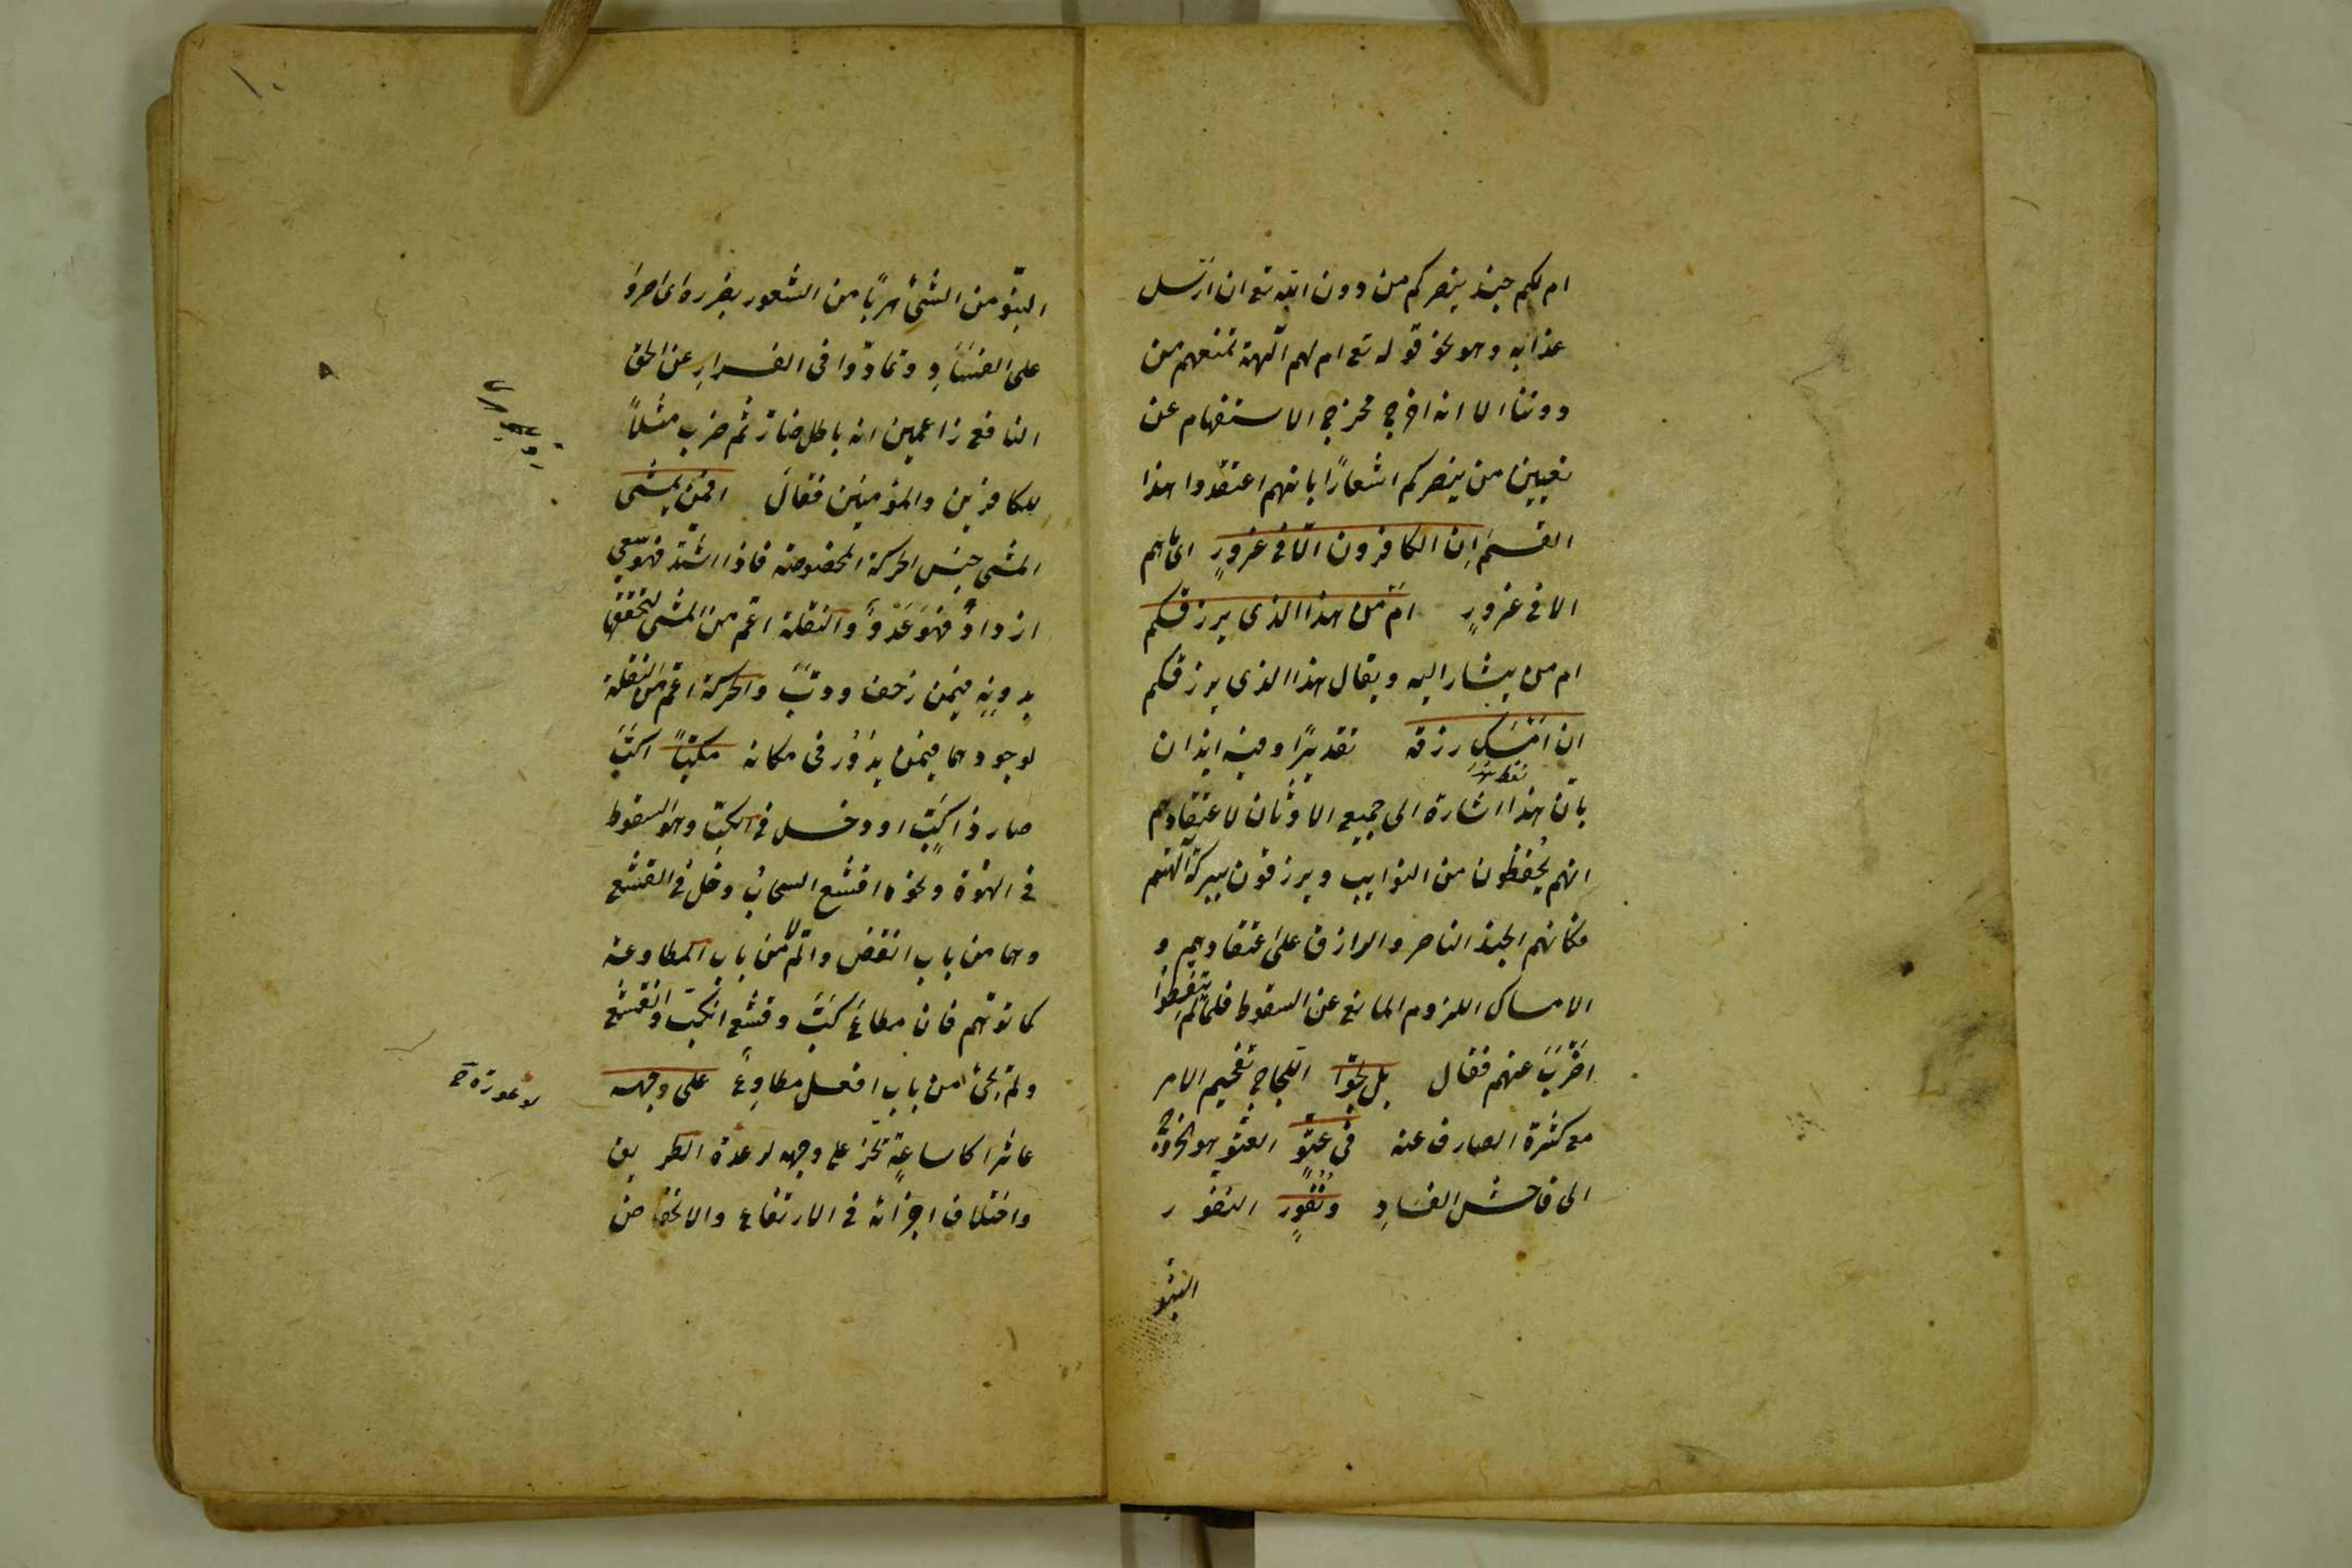 ام لكم جند ينصركم من دون الله تع ان ارسل
عذابه وهو نحو قوله تع ام لهم آلهة تمنعهم من
دوننا الا انه اخرج مخرج الاستفهام عن
تعيين من ينصركم اشعارًا بانهم اعتقدوا هذا
القسم اِن الكافرون الّا فى غرورٍ اى ما هم
الا فى غرورٍ امّن هذا الذى يرزقكم
ام من يشار اليه ويقال هذا الذى يرزقكم
ان امسَك رزقه تقديرًا وفيه ايذان
بانّ هذا اشارة الى جميع الاوثان لاعتقادهم
انهم يُحفظون من النوايب ويرزقون ببركة آلهتهم
فكانهم الجند الناصر والرازق على اعتقادهم و
الامساك اللزوم المانع عن السقوط فلما لم يتعظوا
اَضْرَبَ عنهم فقال بل لجّوا اللجاج تقحيم الامر
مع كثرة الصارف عنه فى عتوٍّ العتوّ هو الخروج
الى فاحش الفسادِ ونُفُورٍ النفور
النبوّ
١٠
النبوّ من الشئ هربًا من الشعور بضرره اى اصرّوا
على الفسَادِ وتمادّوا فى الفرارِ عن الحق
النافع زاعمين انه باطل ضارّ ثم ضرب مثلاً
للكافرين والمؤمنين فقالَ افمن يمشى
المشى جنس الحركة المخصوصة فاذا اشتدّ فهو سعى
ازدادَ فهَو عَدْوٌ والنقلة اعمّ من المشى لتحققها
بدونِهِ فيمن زحف ودبَّ والحركة اعمّ من النقلة
لوجودهما فيمن يدُوْر فى مكانه مكبّاً اكبَّ
صار ذا كَبٍّ او دخل فى الكبّ وهو السقوط
فى الهوّة ونحوه اقشع السحابُ دخل فى القشع
وهما من باب انفض والأم لا من باب المطاوعة
كما توهّم فان مطاوع كَبَّ وقشع انكبّ وانقشع
ولم يجئ من باب افعل مطاوعًا على وجهه
عاثرا كل ساعةٍ تخرّ على وجهه لوعرة الطريق
واختلاف اجزائه فى الارتفاع والانخفاض
لوعورة صح